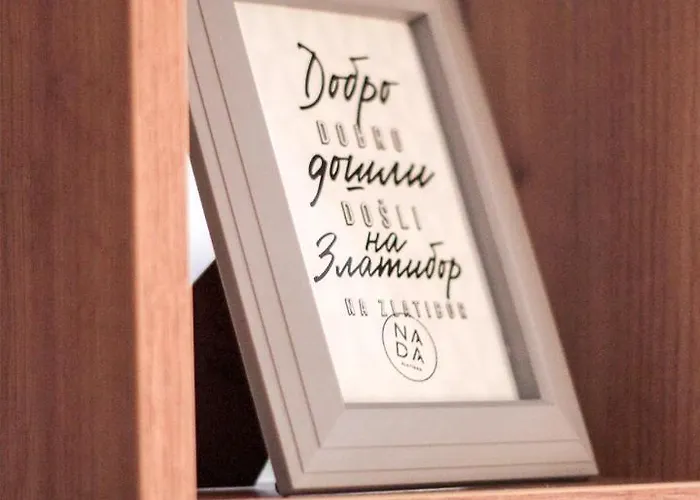 Добро
DOBRO
дошли
DOŠLI
на
Златибор
NA ZLATIBOR
NA
DA
ZLATIBOR